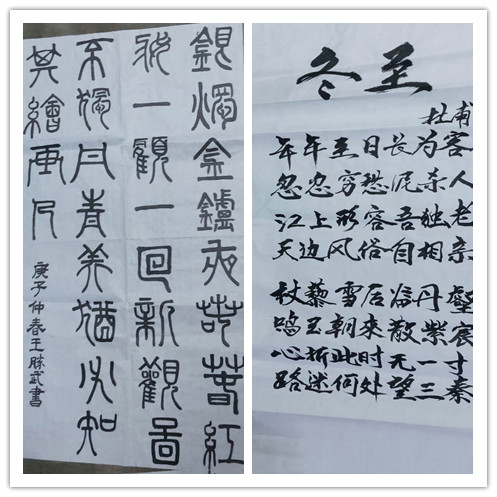 銀燭金鑪夜著紅
妝一觀一回新觀圖
不獨丹青美猶知
其繪画
庚子仲春王勝武書
冬至
杜甫
年年至日长为客
忽忽穷愁泥杀人
江上形容吾独老
天边风俗自相亲
杖藜雪后临丹壑
鸣玉朝來散紫宸
心折此时无一寸
路迷何处望三秦